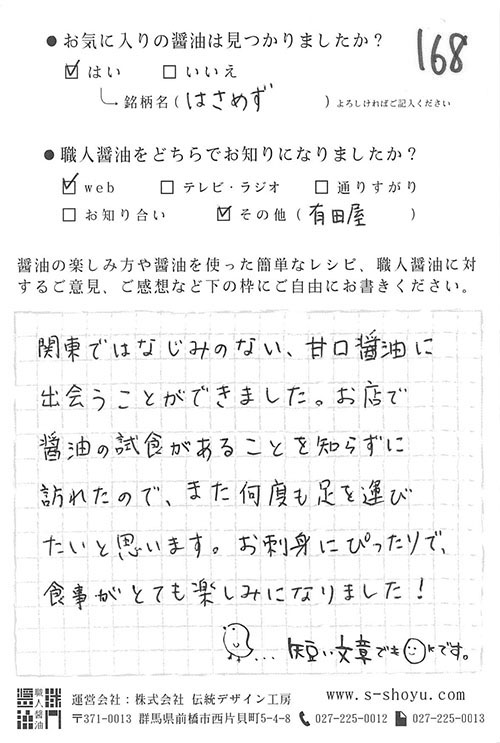 168
● お気に入りの醤油は見つかりましたか？
☑ はい □ いいえ
銘柄名（ はさめず ）よろしければご記入ください
● 職人醤油をどちらでお知りになりましたか？
☑ web □ テレビ・ラジオ □ 通りすがり
□ お知り合い ☑ その他（ 有田屋 ）
醤油の楽しみ方や醤油を使った簡単なレシピ、職人醤油に対
するご意見、ご感想など下の枠にご自由にお書きください。
関東ではなじみのない、甘口醤油に
出会うことができました。お店で
醤油の試食があることを知らずに
訪れたので、また何度も足を運び
たいと思います。お刺身にぴったりで、
食事がとても楽しみになりました！
...短い文章でもOKです。
職人醤油
運営会社：株式会社 伝統デザイン工房 www.s-shoyu.com
〒371-0013 群馬県前橋市西片貝町5-4-8 027-225-0012 027-225-0013